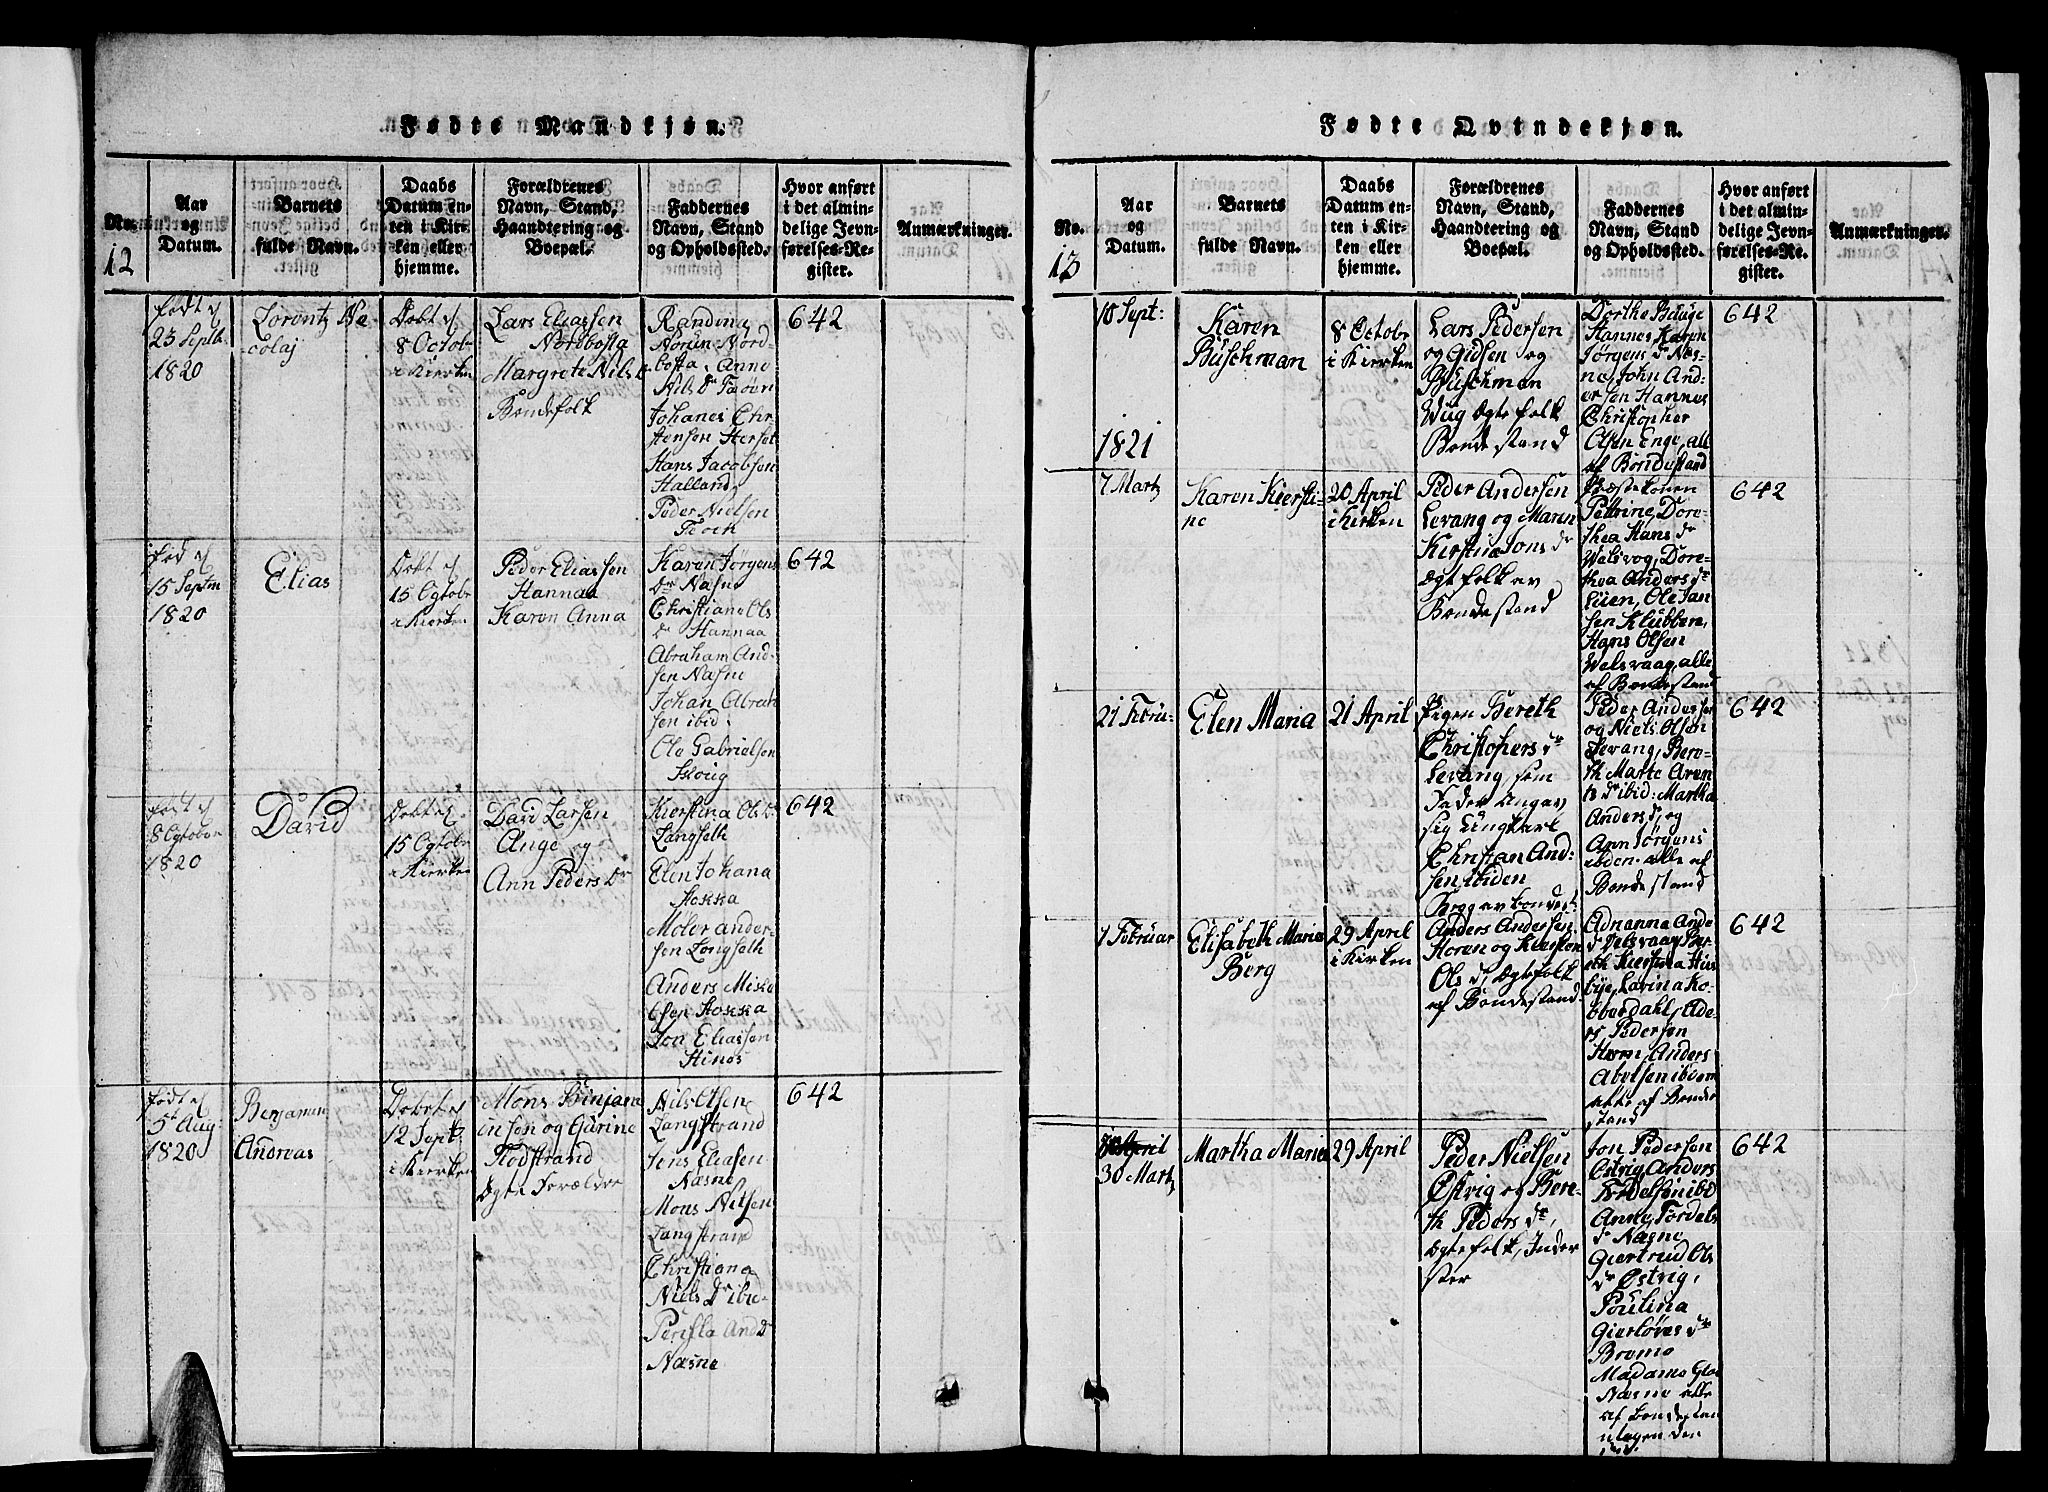 Fødte Mandkjøn.
No.
12
Aar
og
Datum.
Barnets
fulde Navn.
Daabs
Datum en-
ten i Kir-
ken eller
hjemme.
Forældrenes
Navn, Stand,
Haandtering og
Boepæl.
Faddernes
Navn, Stand
og Opholdssted.
Hvor anført
i det almin-
delige Jevn-
førelses-Re-
gister.
Anmærkninger.
født d
23 Septb
1820
Lorentz Ne
colaj
Døbt d
8 Octob
i Kierken
Lars Eliassen
Nordbosta
Margrete Nils
Bøndefolk
Randina
Nord-
bosta. Anne
Nils Dr
Johanes Chr
stensen
Hans Jacobsen
Halland
Peder Nielsen
642
fød d
15 Septm
1820
Elias
Døbt d
15 Ogtobr
i Kierken
Peder Eliassen
Hannaa
Karen Anna
Karen Jørgens
Dr Nasne
Christiane Ols
dr Hannaa
Abraham And-
sen Næsne
Johan Abrah
sen ibid.
Ole Gabrielsen
Skoug
642
født d
8 Ogtober
1820
David
Døbt d
15 Ogtobr
i Kierken
David Larsen
Ange og
Ann Peders Dr
Kierstina Ols Dr
Langseth
Elen Johana
Hokka
Møler ander-
sen Longseth
Anders Miska
elsen Hokka
Jon Eliassen
Stinøs
642
født d
5t Aug
1820
Benjamin
Andreas
Døbt d
12 Septb:
i Kierken
Mons Binjam
ensen og Garine
Flodstrand
ægte Forældre
Nils Olsen
Langstrand
Jens Eliasen
Næsne
Mons Nilsen
Langstrand
Christiana
Niels Dr ibid-
And D
Næsne
642
Fødte Qvindekjøn.
No.
13
Aar
og
Datum.
Barnets
fulde Navn.
Daabs
Datum en-
ten i Kir-
ken eller
hjemme.
Forældrenes
Navn, Stand,
Haandtering og
Boepæl.
Faddernes
Navn, Stand
og Opholdssted.
Hvor anført
i det almin-
delige Jevn-
førelses-Re-
gister.
Anmærkninger.
10 Sept:
Karen
Buschman
8 Octobr
i Kirken
Lars Pedersen
og Gidsen og
Buschman
Wug ægte folk
Bondestand
Dorthe
Hannes Karen
Jørgens dr Næs-
ne, John And-
ersen Hannes
Christopher
Olsen Enge, all
af Bondestand
642
1821
7 Martz
Karen Kiersti-
ne
20 April
i Kirken
Peder Andersen
Levang og Maren
Kirstine Jons dr
ægtefolk av
Bondestand
Præstekonen
Pettrine, Dore-
thea Hans dr
Welsvog, Dore-
thea Anders dr
Lüen, Ole Jan
sen Klubben,
Hans Olsen
Welsvaag, alle
af Bondestand
642
21 Febru-
Elen Maria
21 April
Pigen Bereth
Christophers dr
Levang som
Fader angav
sig Ungkarl
Christian And-
sen ibiden
Beg av bondest
Peder Anderssen
og Niels Olsen
Levang, Bere-
th Marte Aren
ts dr ibid: Martha
Anders d, og
Ann Jørgens
ibden. alle af
Bondestand
642
7 Februar
Elisabeth Marie
Berg
29 April
i Kirken
Anders Andersen
Horen og Kiersten
Ols dr, ægtefolk
af Bondestand
Adrianna Ande
dr Velsvaag Be-
reth Kierstina Hus
bye, Larina Ko-
berdahl, Ade
rs Pedersen
Horn, Anders
Abelsen ibidem
alle af Bonde
stand
642
30 Martz
Martha Marie
29 April
Peder Nielsen
Østvig og Bere-
th Peders dr,
ægtefolk, Inder
ster
Jon Pedersen
Østvig, Anders
Tordelsen ibid
Anne, Tordels
dr Næsne
Giertrud Ols
dr Østvig,
Poulina
Gierløvs dr
Bremo
Madame
Næsne alle
af bondestan
642